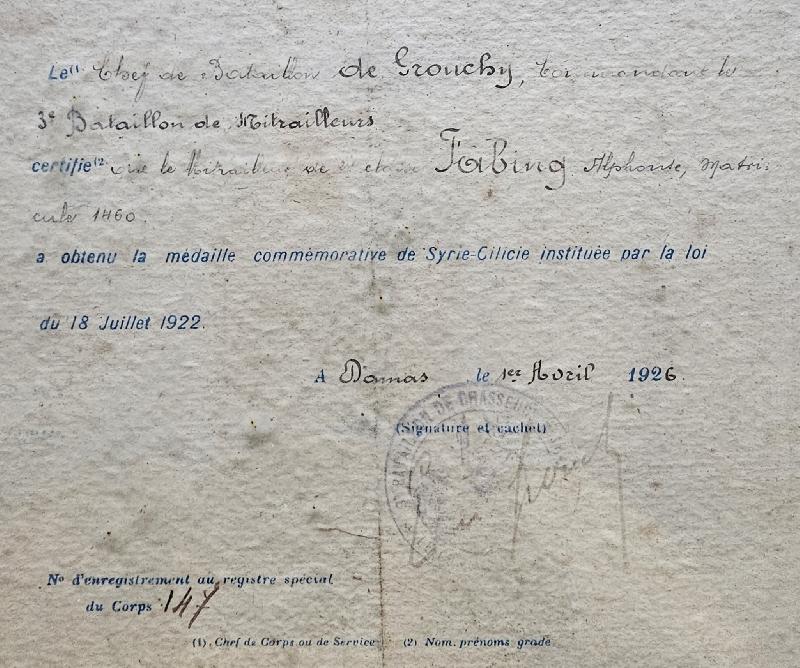 Le(1) Chef de Bataillon de Grouchy, Commandant le
3e Bataillon de Mitrailleurs
certifie(2) que le Mitrailleur de 2e classe Fabing Alphonse, Matri-
cule 1460.
a obtenu la médaille commémorative de Syrie-Cilicie instituée par la loi
du 18 Juillet 1922.
A Damas le 1er Avril 1926.
BATAILLON DE CHASSEURS
(Signature et cachet)
No d'enregistrement au registre spécial
du Corps 147
(1). Chef de Corps ou de Service (2) Nom. prénoms grade